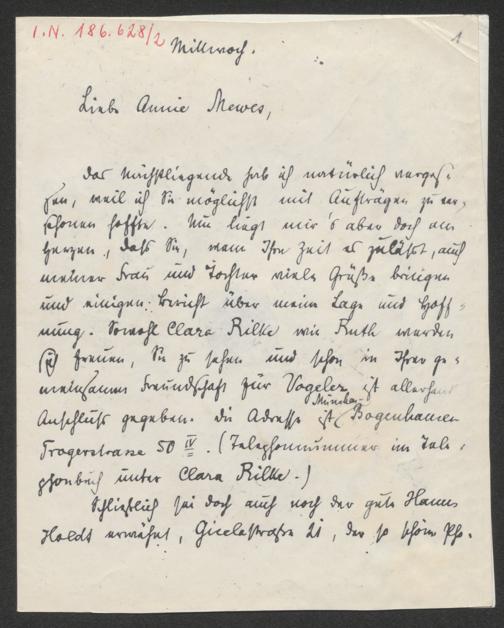 I.N. 186.628/2
1
Mittwoch.
Liebe Annie Mewes,
das Nächstliegende hab ich natürlich verges-
sen, weil ich Sie möglichst mit Aufträgen zu ver-
schonen hoffte. Nun liegt mir's aber doch am
Herzen, daß Sie, wenn Ihre Zeit es zuläßt, auch
meiner Frau und Tochter viele Grüße bringen
und einigen Bericht über meine Lage und Hoff-
nung. Sowohl Clara Rilke wie Ruth werden
sich freuen, Sie zu sehen und schon in Ihrer ge-
meinsamen Freundschaft für Vogeler ist allerhand
Anschluß gegeben. Die Adresse ist München Bogenhausen
Trogerstrasse 50 IV. (Telephonnummer im Tele-
phonbuch unter Clara Rilke.)
Schließlich sei doch auch noch der gute Hanns
Holdt erwähnt, Giselastraße 21, der so schöne Pho-